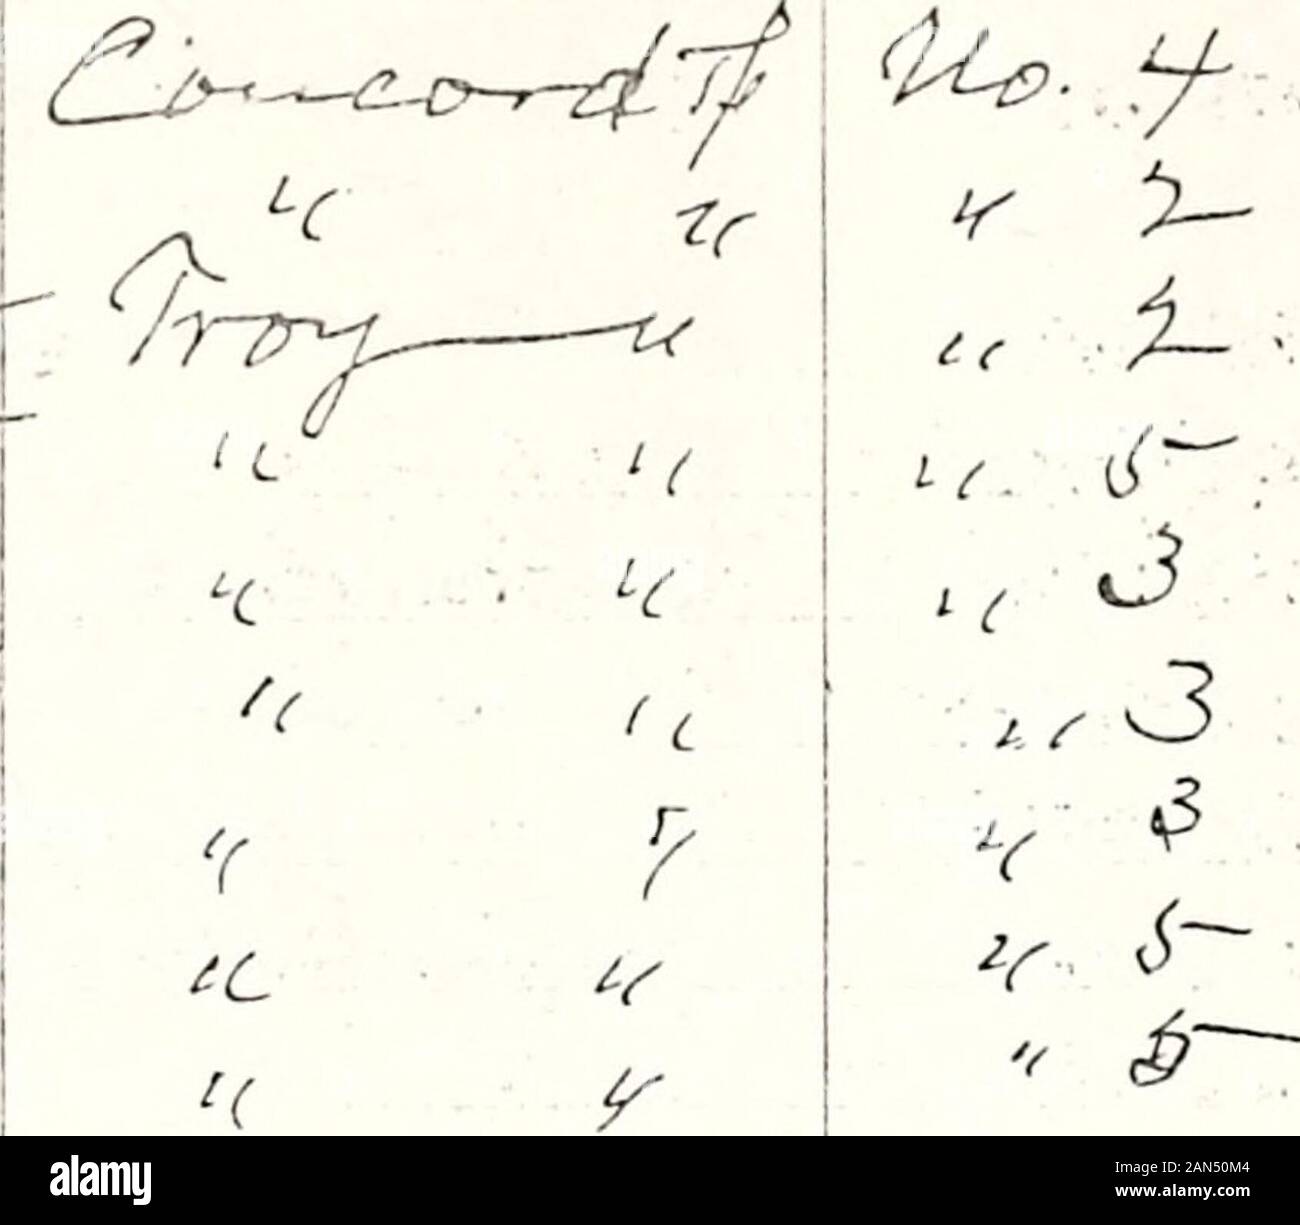 Concord Tp No. 4
" " " 2
Troy " " 2
" " " 5
" " " 3
" " " 3
" " " 3
" " " 5
" " " 5
alamy
Image ID: 2AN50M4
www.alamy.com